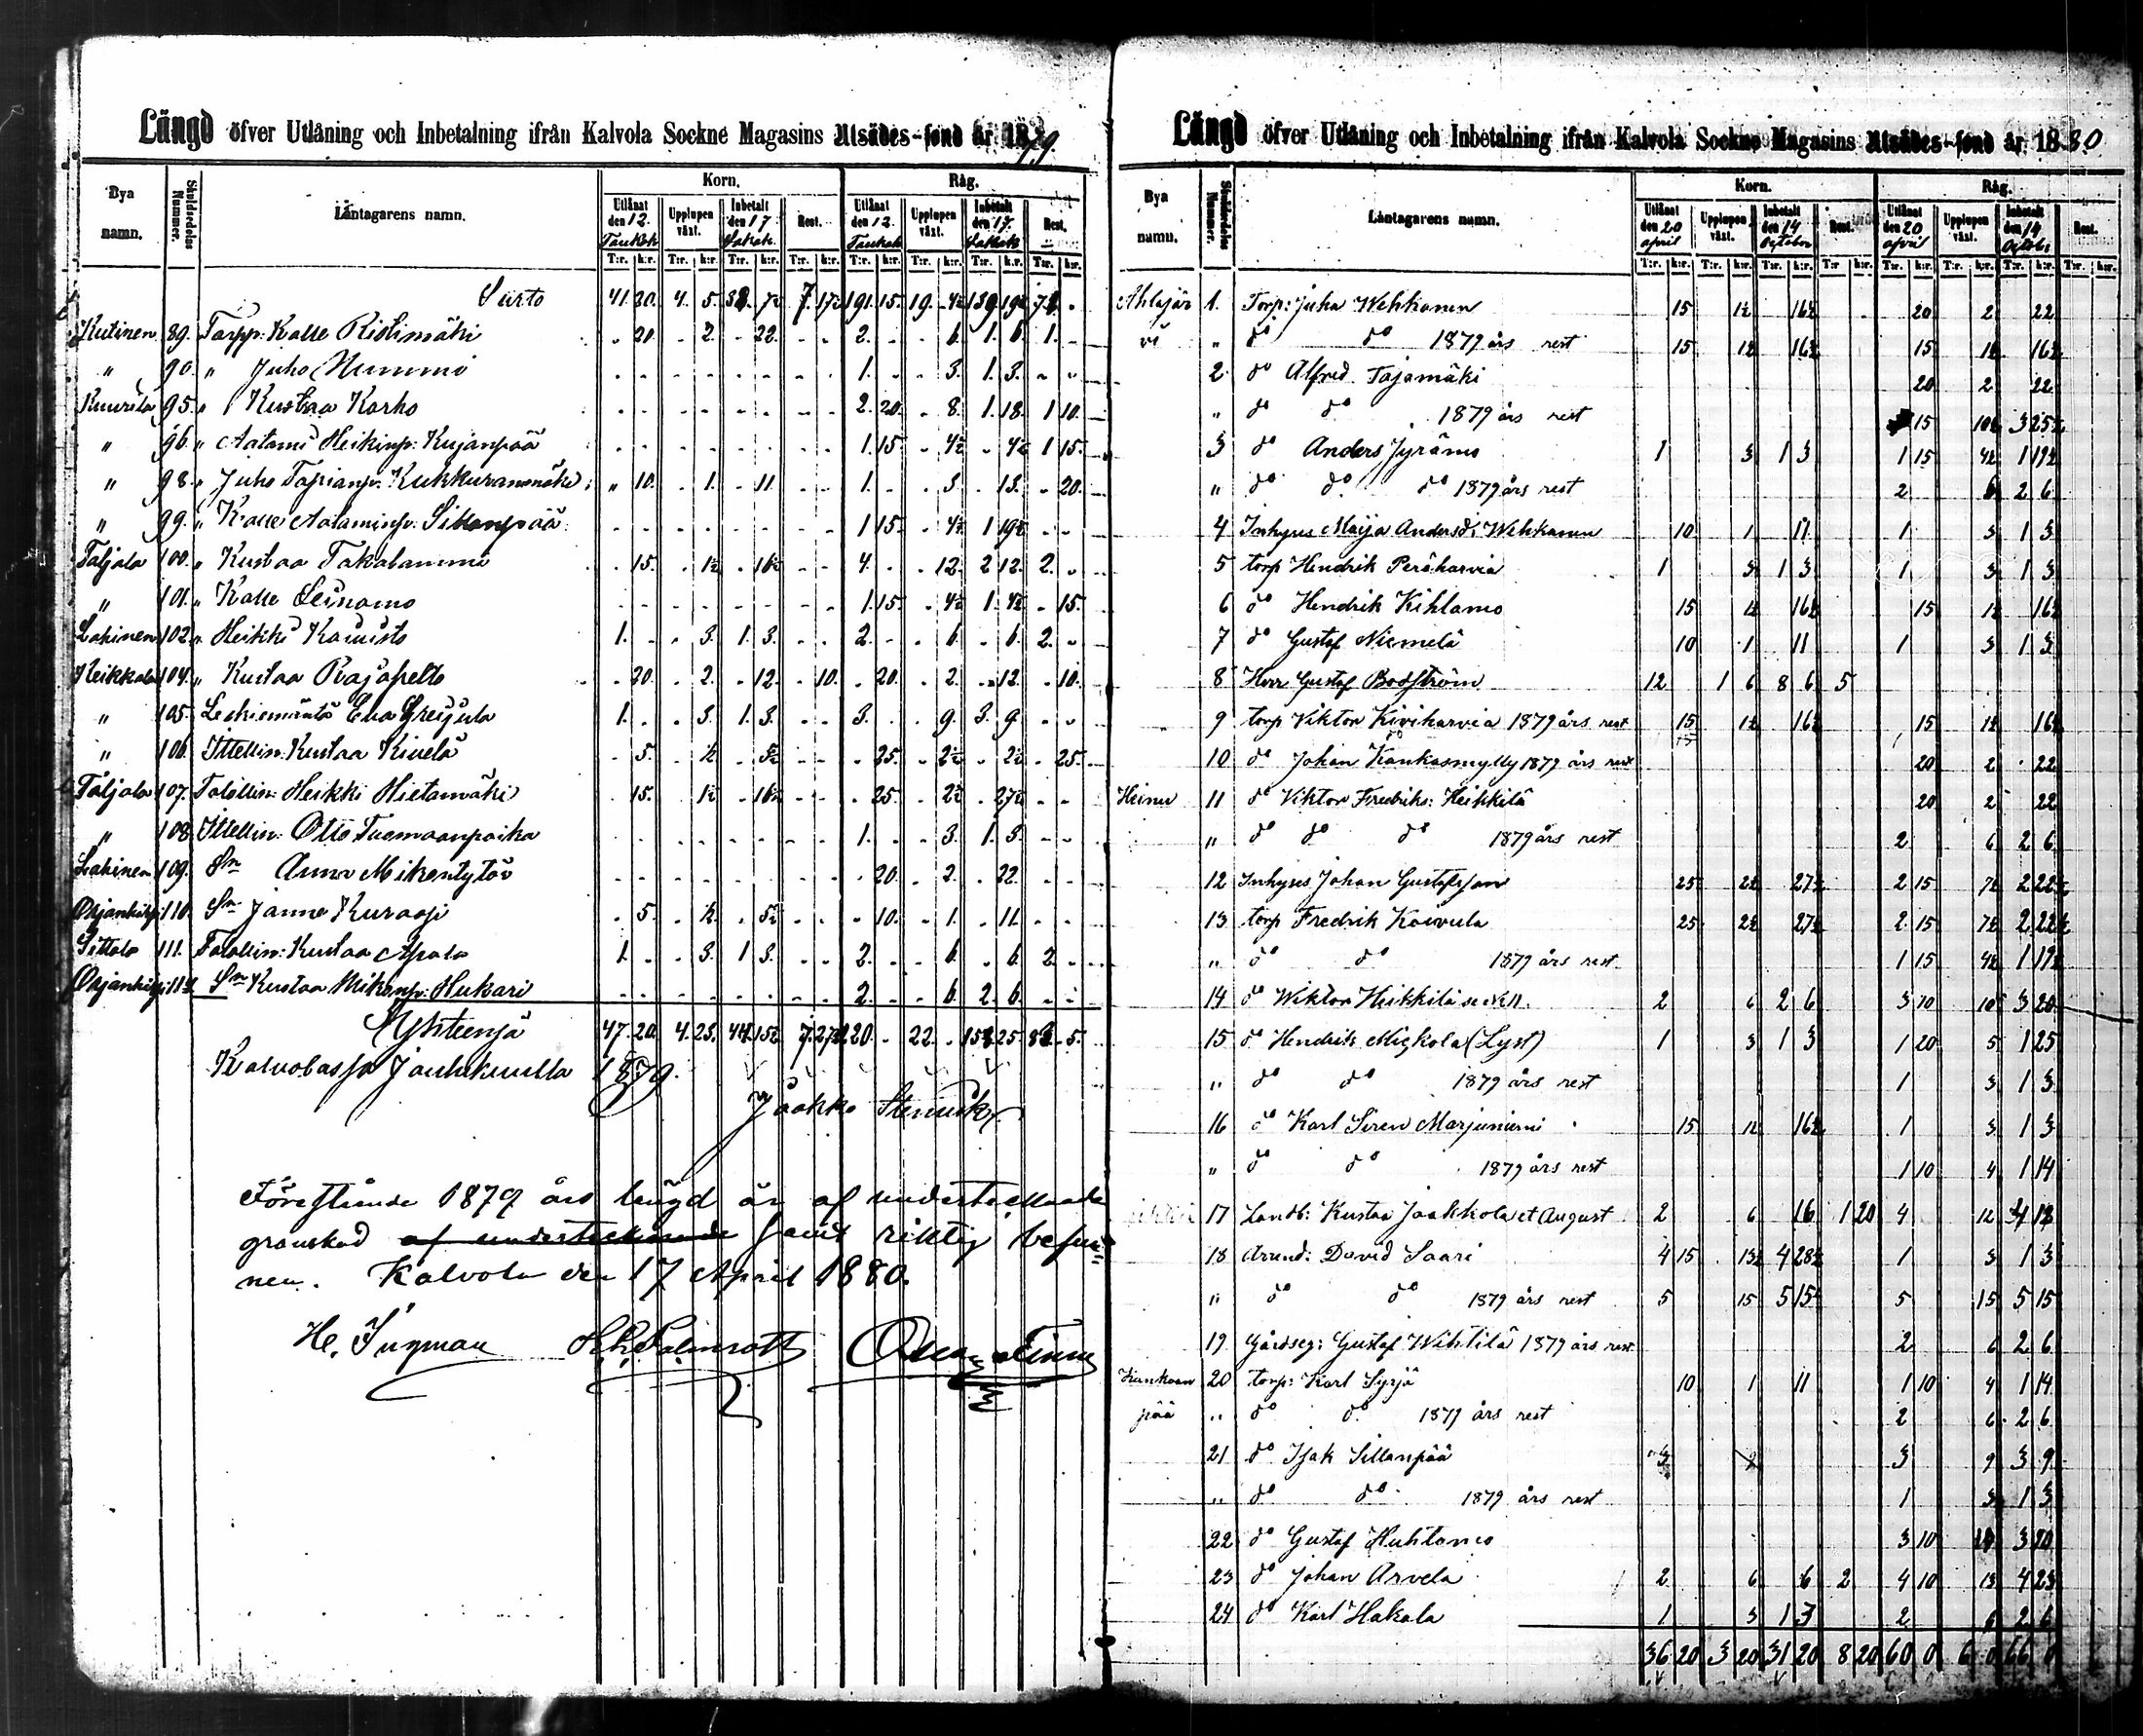 Längd öfver Utlåning och Inbetalning ifrån Kalvola Sockne Magasins Utsädes-fond år 1879.
Bya namn. Skuldsedelns Nummer. Låntagarens namn. Korn. Råg.
Utlånat den 12. Toukok Upplupen växt. Inbetalt den 17 Lokak. Rest. Utlånat den 12. Toukok Upplupen växt. Inbetalt den 17. Lokak Rest.
T:r. k:r. T:r. k:r. T:r. k:r. T:r. k:r. T:r. k:r. T:r. k:r. T:r. k:r. T:r. k:r.
Siirto 41. 20. 4. 5.
Kutinen 89. Torpp: Kalle Ristimäki . 20. . 2. . 22. . . 2. . . 6. 1. 6. 1. .
" 90. " Juho Nummi 1. . . 3. 1. 3. . .
95. " Kustaa Karho 2. 20. . 8. 1. 18. 1 10.
" 96. " Aatami Heikinp: Kujanpää 1. 15. . 4½ . 4½ 1 15.
" 98. " Juho Tapianp: Kukkuranmäki " 10. . 1. . 11. . . 1. . . 3. . 13. . 20.
" 99. " Kalle Aataminp: Sillanpää 1 15. . 4½ 1 19½ . .
Taljala 100. " Kustaa Takalammi . 15. . 1½ . 16½ . . 4. . . 12. 2 12. 2. .
" 101. " Kalle Leinamo 1. 15. . 4½ 1. 4½ . 15.
Lahinen 102. " Heikki Kamisto 1. . . 3. 1. 3. . . 2. . . 6. . 6. 2. .
Keikkala 104. " Kustaa Rajapelto . 20. . 2. . 12. . 10. . 20. . 2. . 12. . 10.
" 105. Leskiemäntä Eva 1. . . 3. 1. 3. . . 3. . . 9. 3. 9. . .
" 106. Itellin: Kustaa Kivelä . 5. . ½ . 5½ . . . 25. . 2½ . 2½ . 25.
Taljala 107. Talollin: Heikki Hietamäki . 15. . 1½ . 16½ . . . 25. . 2½ . 27½ . .
" 108. Itellin: Otto Tuomaanpoika 1. . . 3. 1. 3. . .
Lahinen 109. Sn Anna Mikontytär . 20. . 2. . 22. . .
110. Sn Janne Kuraasi . 5. . ½ . 5½ . . . 10. . 1. . 11. . .
Sittala 111. Talollin: Kustaa Apala 1. . . 3. 1 3. . . 2. . . 6. . 6. 2. .
Sn Kustaa Mikonp: Hukari 2. . . 6. 2. 6. . .
Yhteensä 47. 20. 4. 25. 44. 15½ 7. 27½ 220. . 22. .
Kalvolassa Joulukuulla 1879.
Jaakko
Förestånde 1879 års längd är af undertecknade
granskad af undertecknade samt riktig befun=
nen. Kalvola den 17 April 1880.
Längd öfver Utlåning och Inbetalning ifrån Kalvola Sockne Magasins Utsädes-fond år 1880
Bya namn. Skuldsedelns Nummer. Låntagarens namn. Korn. Råg.
Utlånat den 20 april Upplupen växt. Inbetalt den 14 October Rest. Utlånat den 20 april Upplupen växt. Inbetalt den 14 Octobr Rest.
T:r. k:r. T:r. k:r. T:r. k:r. T:r. k:r. T:r. k:r. T:r. k:r. T:r. k:r. T:r. k:r.
Ahlajär 1. Torp: Juha Wehkanen 15 1½ 16½ 20 2 22
vi " do do 1879 års rest 15 1½ 16½ 15 1½ 16½
2 do Alfred Tajamäki 20 2 22
" do do 1879 års rest 15 10½ 3 25½
3 do Anders Jyrämo 1 3 1 3 1 15 4½ 1 19½
" do do do 1879 års rest 2 6 2 6
4 Inhyses Maija Andersd: Wehkanen 10 1 11 1 3 1 3
5 torp Hendrik Peräharvia 1 3 1 3 1 3 1 3
6 do Hendrik Kihlamo 15 1½ 16½ 15 1½ 16½
7 do Gustaf Niemelä 10 1 11 1 3 1 3
8 Herr Gustaf Boström 12 1 6 8 6 5
9 torp Viktor Kiviharvia 1879 års rest 15 1½ 16½ 15 1½ 16½
10 do Johan Kankasmylly 1879 års rest 20 2 22
Heinu 11 do Viktor Fredriks: Heikkilä 20 2 22
" do do do 1879 års rest 2 6 2 6
12 Inhyses Johan Gustafsson 25 2½ 27½ 2 15 7½ 2 22½
13 torp Fredrik Koivula 25 2½ 27½ 2 15 7½ 2 22½
" do do 1879 års rest 1 15 4½ 1 19½
14 do Wiktor Heikkilä 2 6 2 6 3 10 10 3 20
15 do Hendrik Mickola (Lyst) 1 3 1 3 1 20 5 1 25
" do do 1879 års rest 1 3 1 3
16 do Karl Siren Marjaniemi 15 1½ 16½ 1 3 1 3
" do do 1879 års rest 1 10 4 1 14
17 Landb: Kustaa Jaakkola et August 2 6 16 1 20 4 12
18 Arend: David Saari 4 15 13½ 4 28½ 1 3 1 3
" do do 1879 års rest 5 15 5 15 5 15 5 15
19 Gårdseg: Gustaf Wihtilä 1879 års rest 2 6 2 6
Kankaan 20 torp: Karl Syrjä 10 1 11 1 10 4 1 14
pää " do do 1879 års rest 2 6 2 6
21 do Isak Sillanpää 3 9 3 9 3 9
" do do 1879 års rest 1 3 1 3
22 do Gustaf Huhtamo 3 10 10 3 20
23 do Johan Arvela 2 6 6 2 4 10 13 4 23
24 do Karl Hakala 1 3 1 3 2 6 2 6
36 20 3 20 31 20 8 20 60 0 6 0 66 0